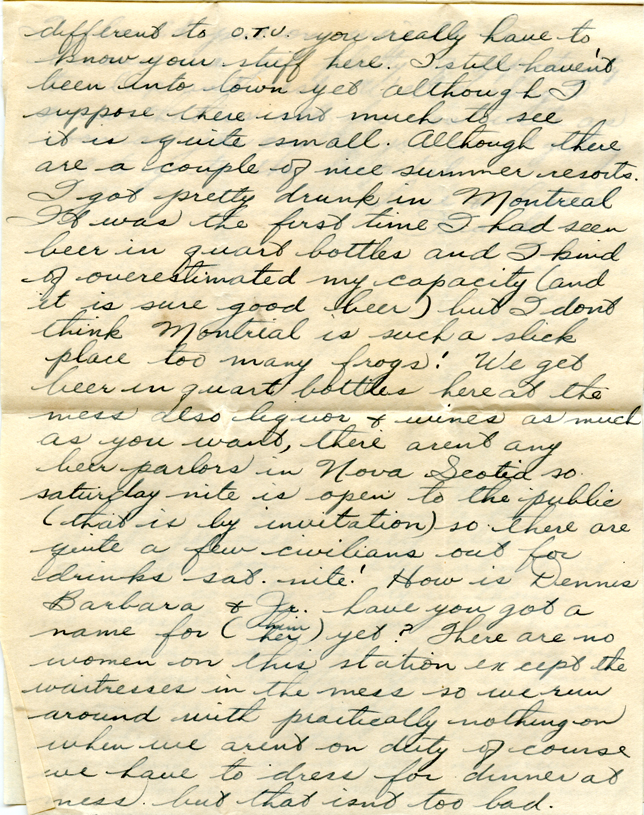 different to O.T.U. you really have to
know your stuff here. I still haven't
been into town yet although I
suppose there isnt much to see
it is quite small. Although there
are a couple of nice summer resorts.
I got pretty drunk in Montreal
It was the first time I had seen
beer in quart bottles and I kind
of overestimated my capacity (and
it is sure good beer) but I dont
think Montreal is such a slick
place too many frogs! We get
beer in quart bottles here at the
mess also liquor & wines as much
as you want, there arent any
beer parlors in Nova Scotia so
saturday nite is open to the public
(that is by invitation) so there are
quite a few civilians out for
drinks sat. nite! How is Dennis
Barbara & Jr. have you got a
name for (him
her) yet? There are no
women on this station except the
waitresses in the mess so we run
around with practically nothing on
when we arent on duty of course
we have to dress for dinner at
mess. but that isnt too bad.